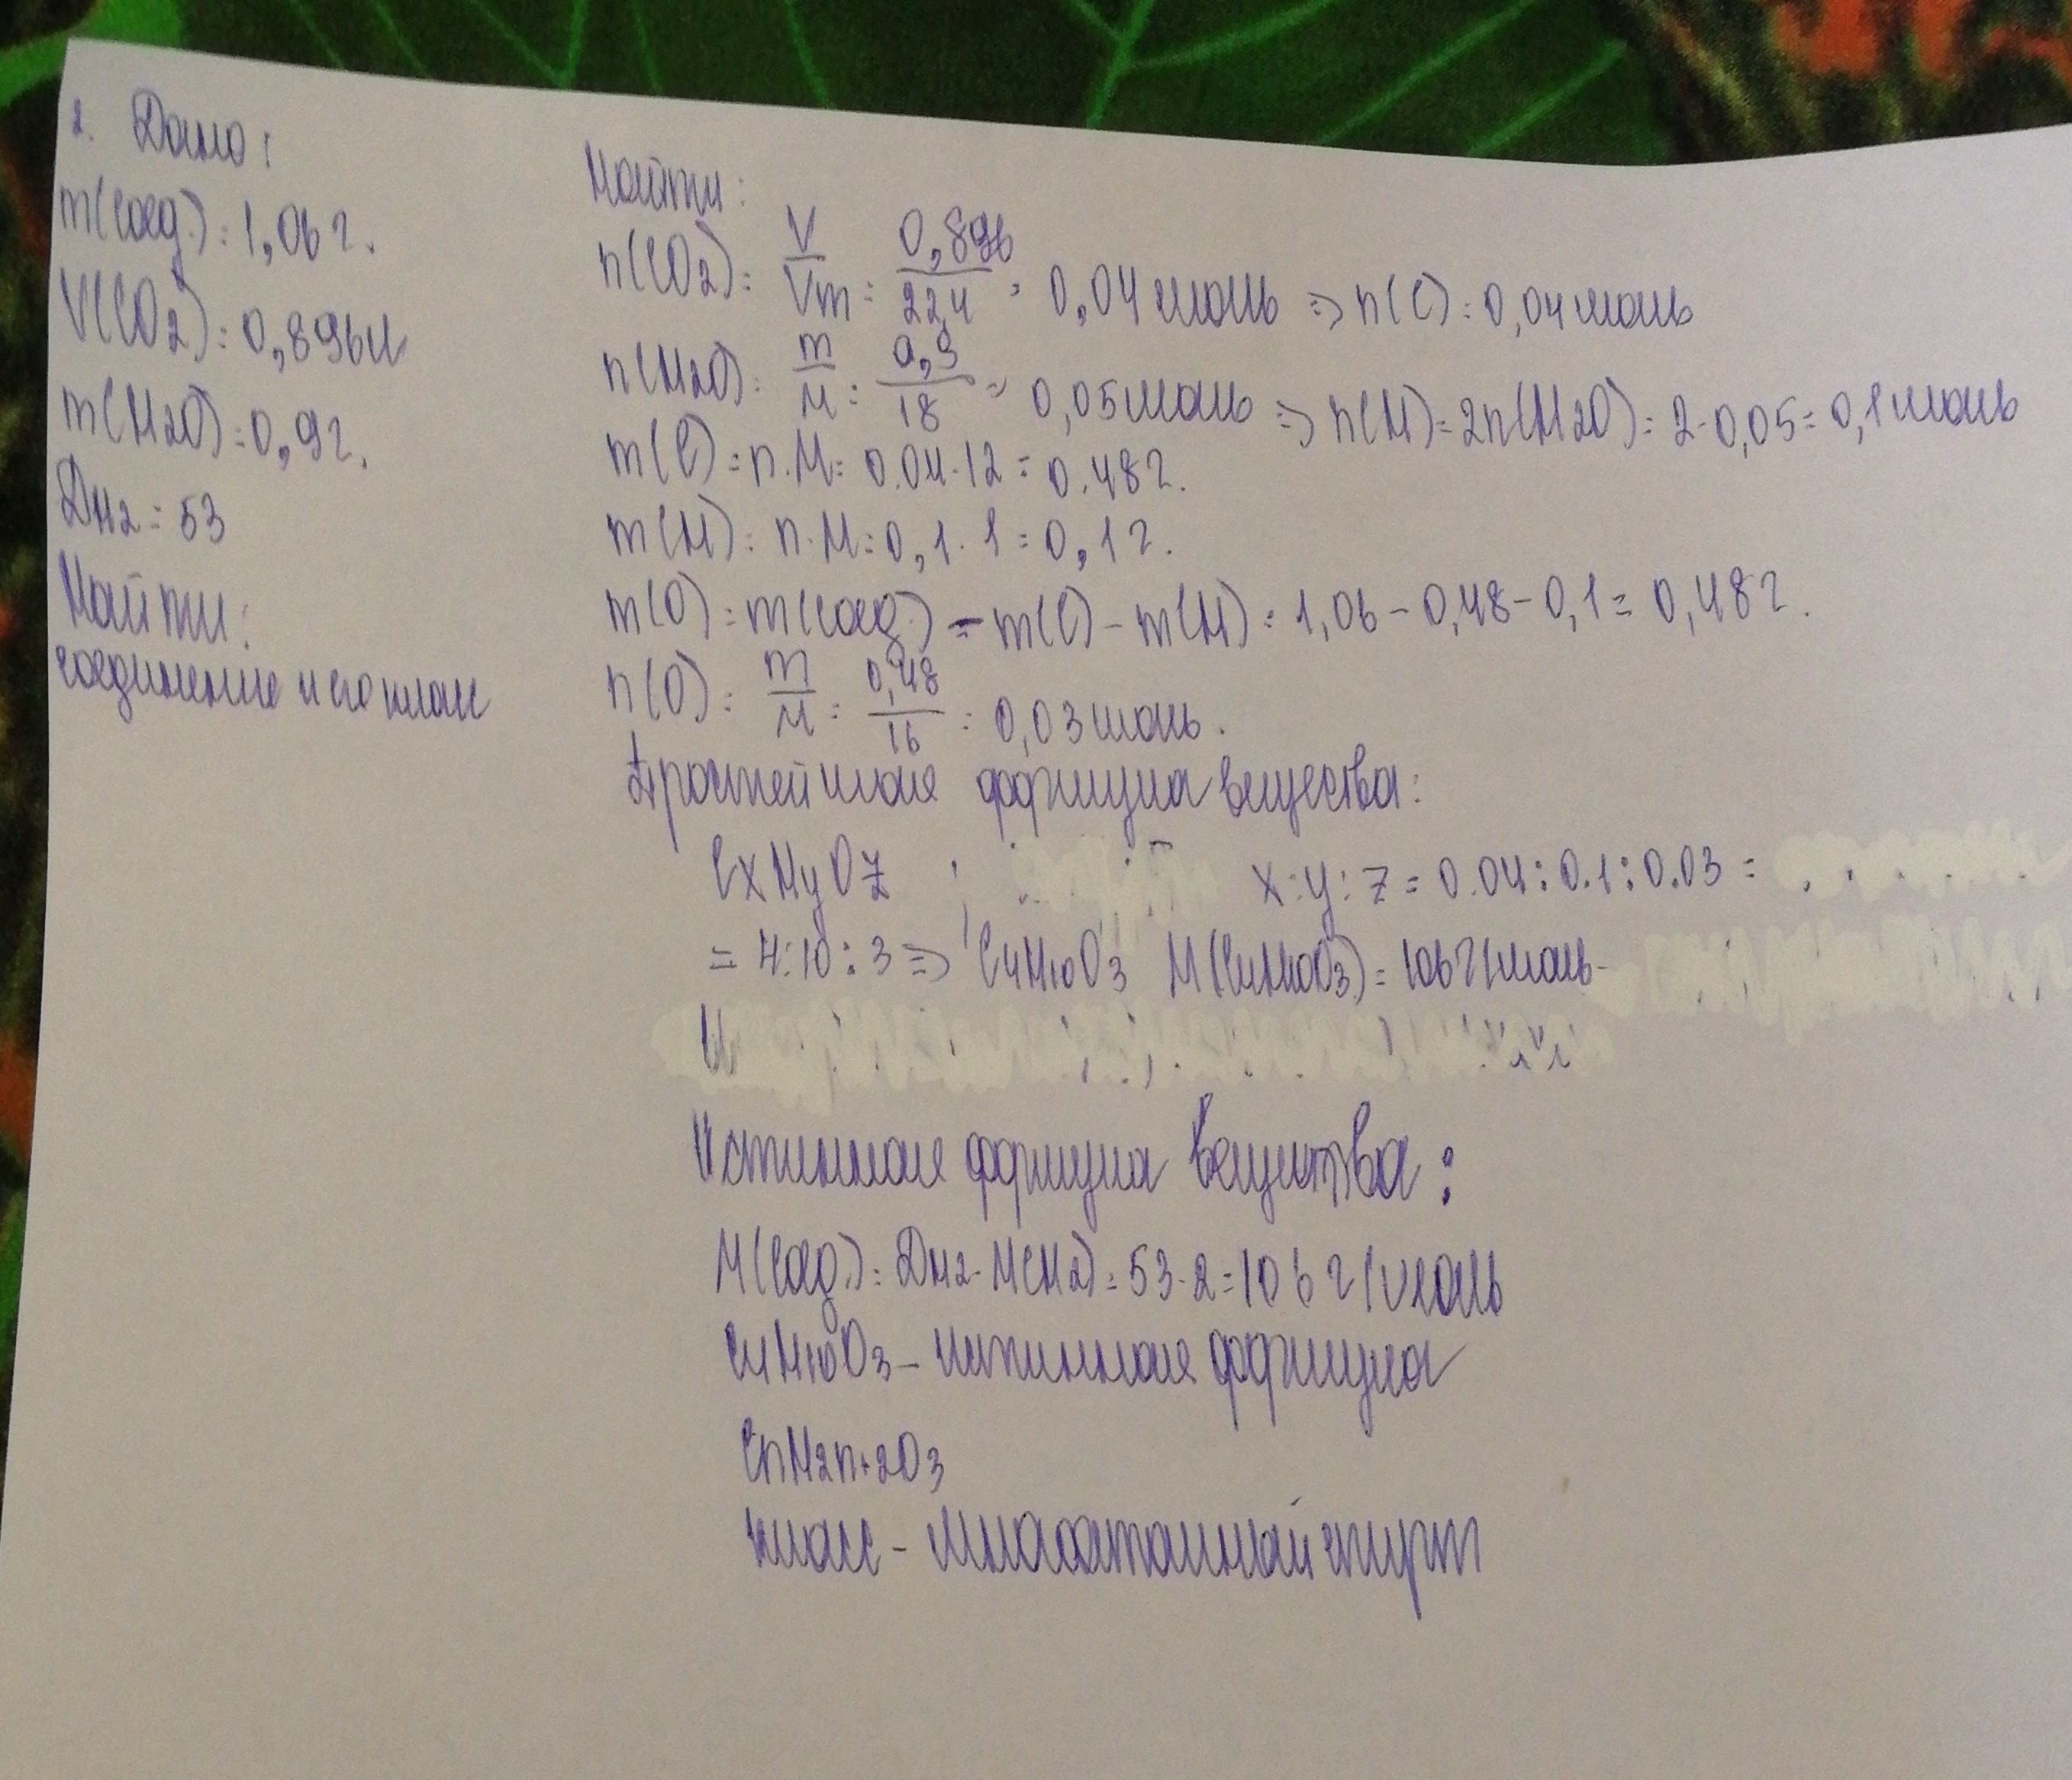 2. Дано:
m(соед.) = 1,06 г.
V(CO2) = 0,896 л
m(H2O) = 0,9 г.
DH2 = 53
Найти:
соединение и его класс
Найти:
n(CO2) = V/Vm = 0,896/22,4 = 0,04 моль => n(C) = 0,04 моль
n(H2O) = m/M = 0,9/18 = 0,05 моль => n(H) = 2n(H2O) = 2·0,05 = 0,1 моль
m(C) = n·M = 0.04·12 = 0.48 г.
m(H) = n·M = 0,1·1 = 0,1 г.
m(O) = m(соед.) – m(C) – m(H) = 1,06 – 0,48 – 0,1 = 0,48 г.
n(O) = m/M = 0,48/16 = 0,03 моль.
Простейшая формула вещества:
CxHyOz x:y:z = 0.04:0.1:0.03 =
= 4:10:3 => C4H10O3 M(C4H10O3) = 106 г/моль
Истинная формула вещества:
M(соед.) = DH2·M(H2) = 53·2 = 106 г/моль
C4H10O3 – истинная формула
CnH2n+2O3
класс – многоатомный спирт